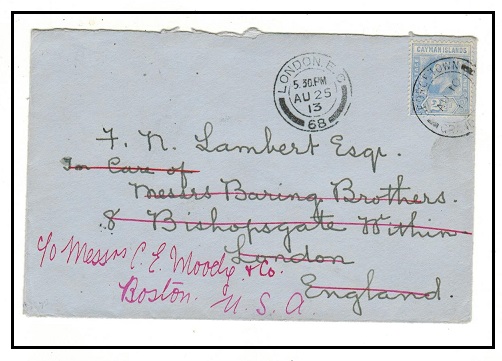 CAYMAN ISLANDS
GEORGETOWN
LONDON. E.C
5.30 PM
AU 25
13
68
F. N. Lambert Esqr.
In Care of
Messrs Baring Brothers.
8 Bishopsgate Within
London
England.
c/o Messrs C. E. Moody & Co.
Boston.
U. S. A